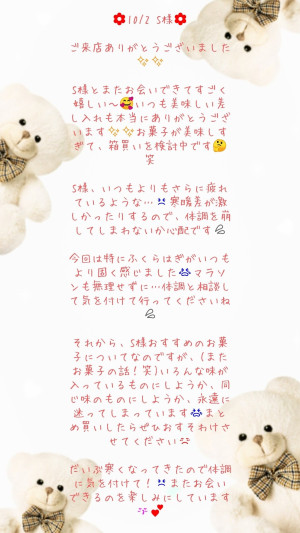 🌺10/2 S様🌺
ご来店ありがとうございました
✨✨
S様とまたお会いできてすごく
嬉しい〜🥰いつも美味しい差
し入れも本当にありがとうござい
ます✨✨お菓子が美味しす
ぎて、箱買いを検討中です🤔
笑
S様、いつもよりもさらに疲れ
ているような…寒暖差が激
しかったりするので、体調を崩
してしまわないか心配です
今回は特にふくらはぎがいつも
より固く感じましたマラソ
ンも無理せずに…体調と相談し
て気を付けて行ってくださいね
それから、S様おすすめのお菓
子についてなのですが、(また
お菓子の話!笑)いろんな味が
入っているものにしようか、同
じ味のものにしようか、永遠に
迷ってしまっていますまと
め買いしたらぜひおすそわけさ
せてください
だいぶ寒くなってきたので体調
に気を付けて!またお会い
できるのを楽しみにしています
💕